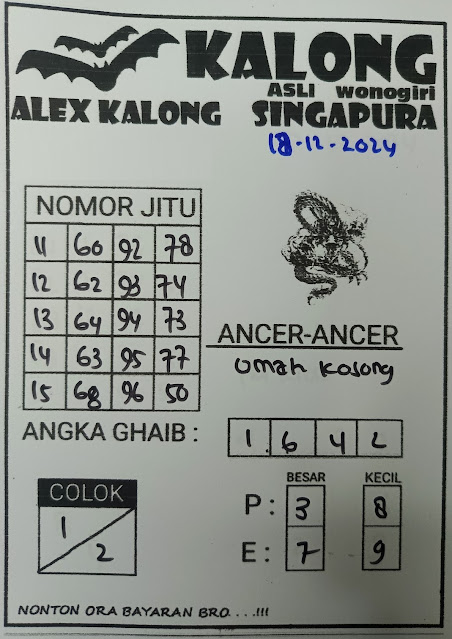 KALONG
ASLI wonogiri
ALEX KALONG SINGAPURA
18-12-2024
NOMOR JITU
11 60 92 78
12 62 93 74
13 64 94 73
14 63 95 77
15 68 96 50
ANCER-ANCER
Omah Kosong
ANGKA GHAIB : 1 6 4 2
COLOK
1
2
BESAR KECIL
P : 3 8
E : 7 9
NONTON ORA BAYARAN BRO. . . .!!!